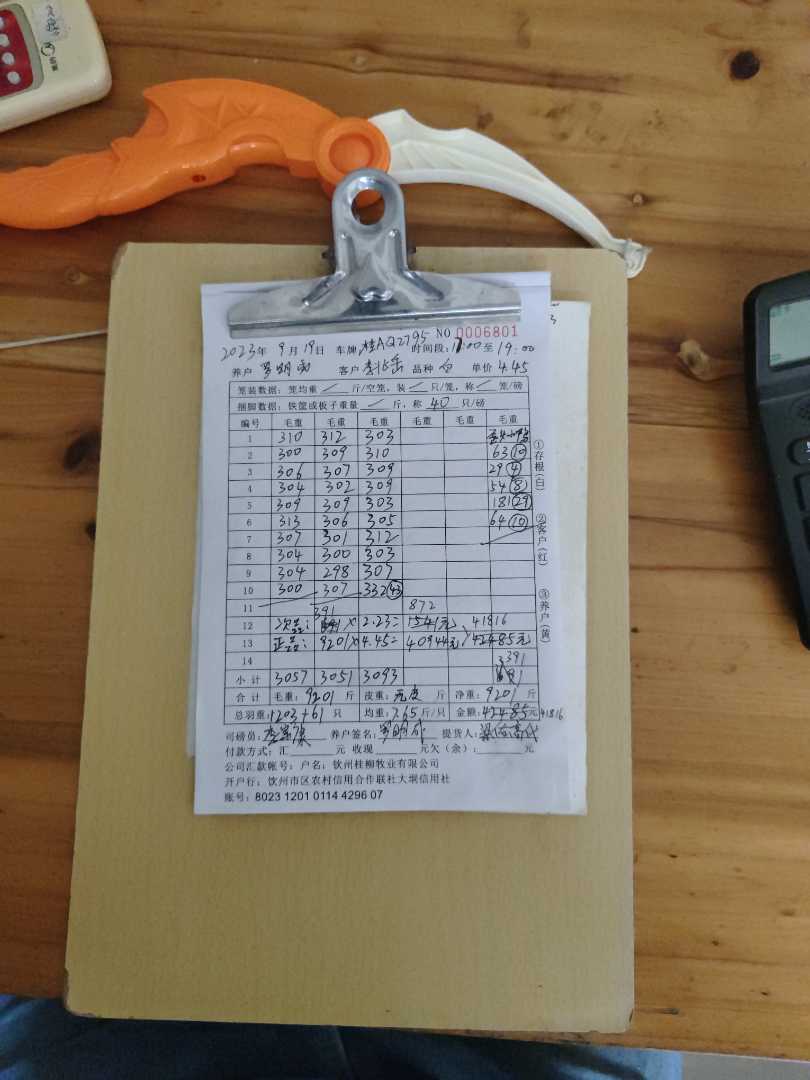 NO 0006801
2023年 9月19日 车牌 桂AQ2795 时间段:17:00至19:00
养户 罗明 客户 品种 白 单价 4.45
笼装数据: 笼均重 ／ 斤/空笼, 装 ／ 只/笼, 称 ／ 笼/磅
捆脚数据: 铁筐或板子重量 ／ 斤, 称 40 只/磅
编号 毛重 毛重 毛重 毛重 毛重 毛重
1 310 312 303
2 300 309 310 63 ⑩
3 306 307 309 29 ④
4 304 302 309 54 ⑧
5 309 309 303 181 ㉙
6 313 306 305 64 ⑩
7 307 301 312
8 304 300 303
9 304 298 307
10 300 307 332 ㊸
11 391 872
12 次品: × 2.23= 1541元 41816
13 正品: 9201×4.45= 40944元 42485元
14 391
小计 3057 3051 3093
合计 毛重: 9201 斤 皮重: 无皮 斤 净重: 9201 斤
总羽重: 1203+61 只 均重: 7.65 斤/只 金额: 42485元 41816
司磅员: 养户签名: 罗明 提货人:
付款方式: 汇 元 收现 元欠(余): 元
公司汇款帐号: 户名: 钦州桂柳牧业有限公司
开户行: 钦州市区农村信用合作联社大垌信用社
账号: 8023 1201 0114 4296 07
①存根(白)
②客户(红)
③养户(黄)